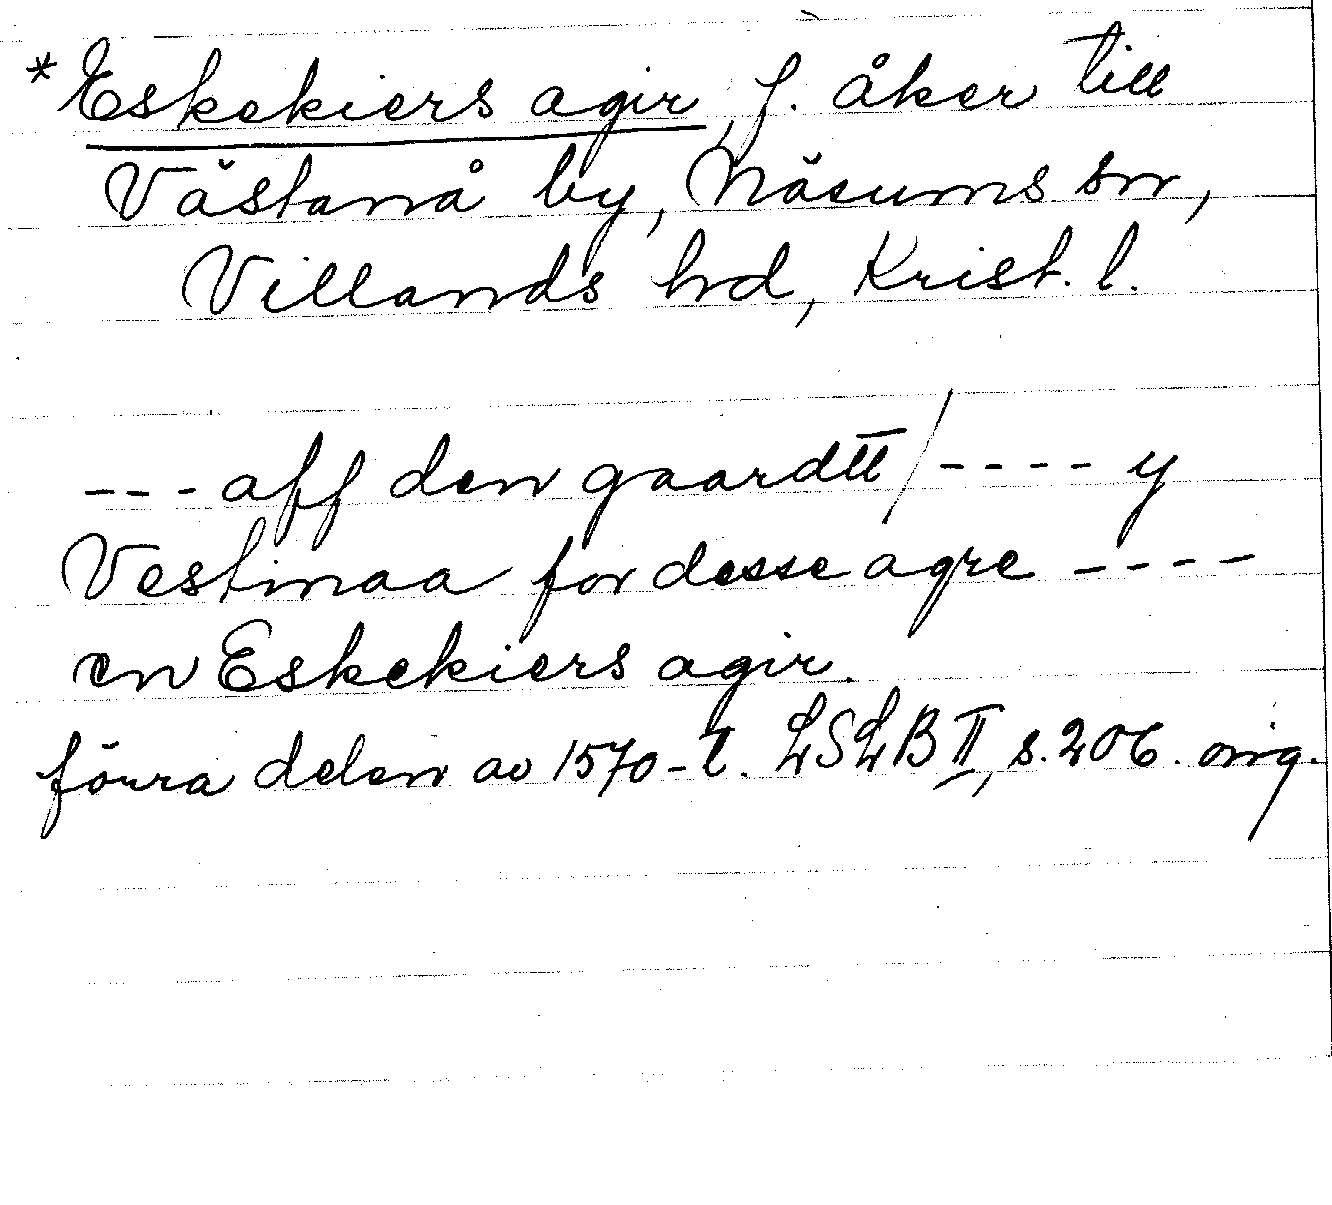 *Eskekiers agir, f. åker till
Västanå by, Näsums sn,
Villands hd, Krist. l.
--- aff den gaardtt /---- y
Vestinaa for desse agre ----
en Eskekiers agir.
förra delen av 1570-t. LSLB II, s. 206. orig.